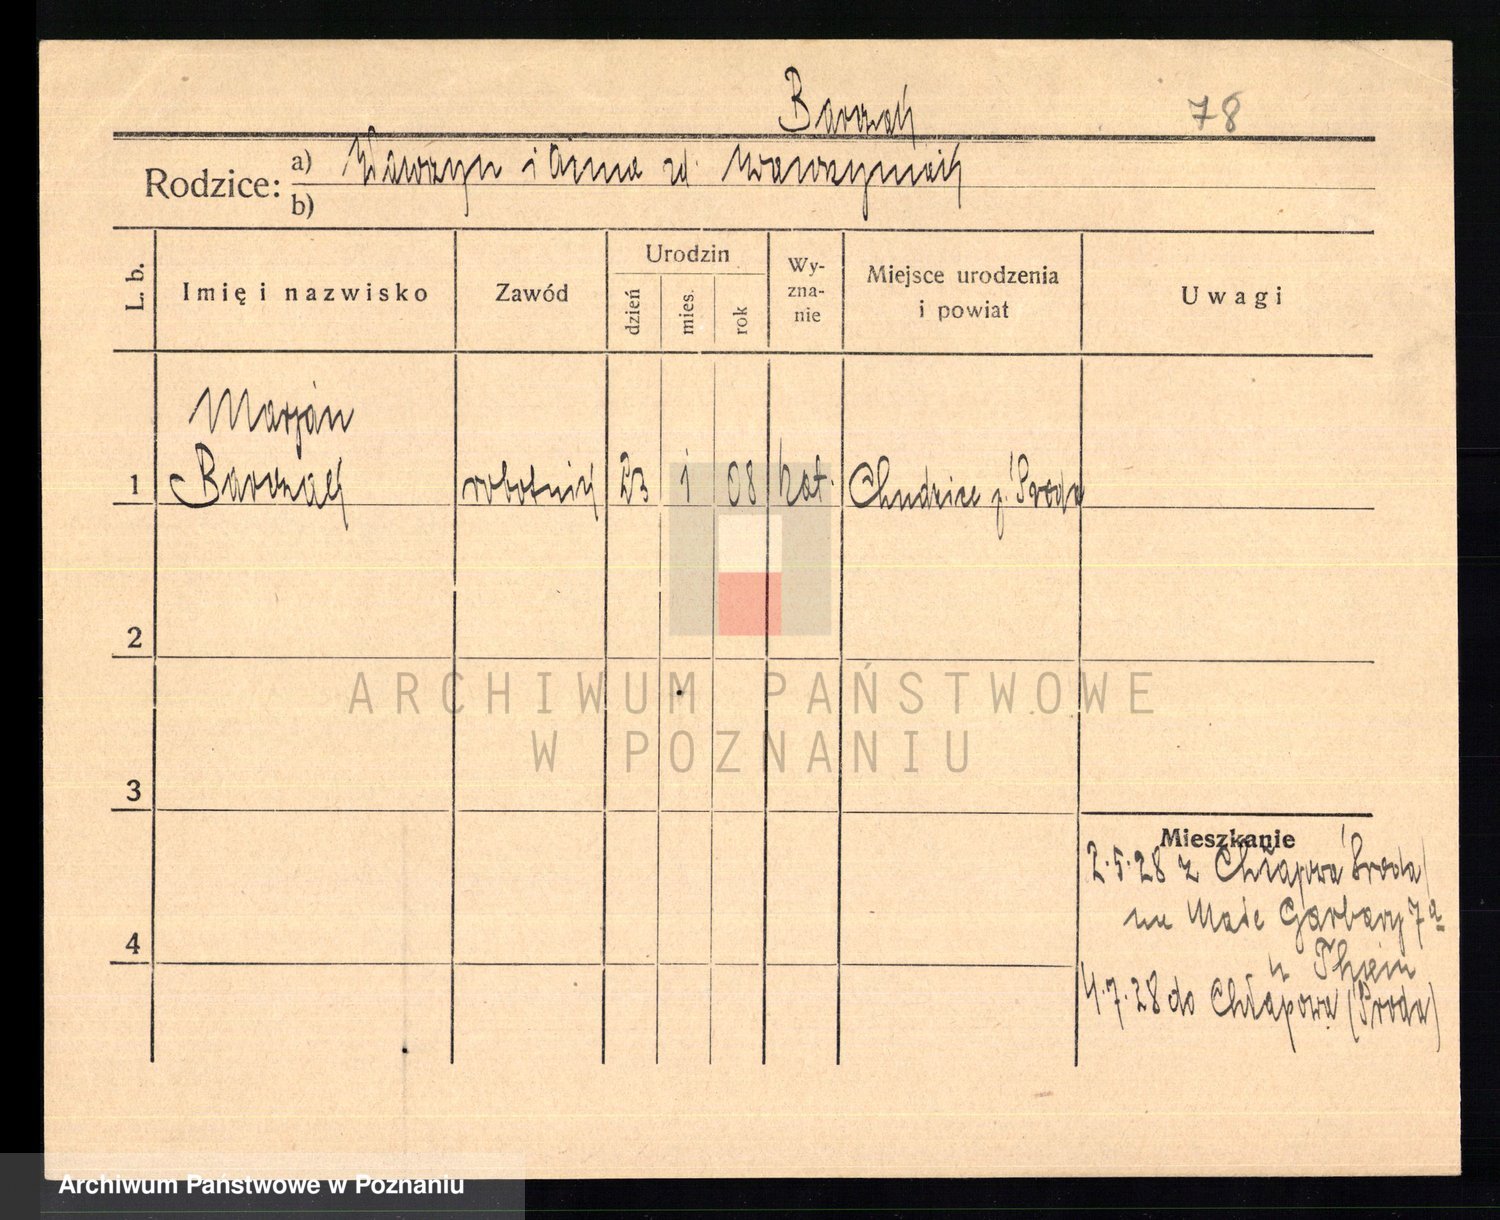 Barczak
78
Rodzice: a) Wawrzyn i Anna zd. Wawrzyniak
b)
L. b.
Imię i nazwisko
Zawód
Urodzin
dzień
mies.
rok
Wy-
zna-
nie
Miejsce urodzenia
i powiat
Uwagi
Marjan
1 Barczak robotnik 23 1 08 kat. Chudzice p. Środa
2
3
4
Mieszkanie
2.5.28 z Chłapowa Środa
na Małe Garbary 7a
u Thiem
4.7.28 do Chłapowa (Środa)
ARCHIWUM PAŃSTWOWE
W POZNANIU
Archiwum Państwowe w Poznaniu